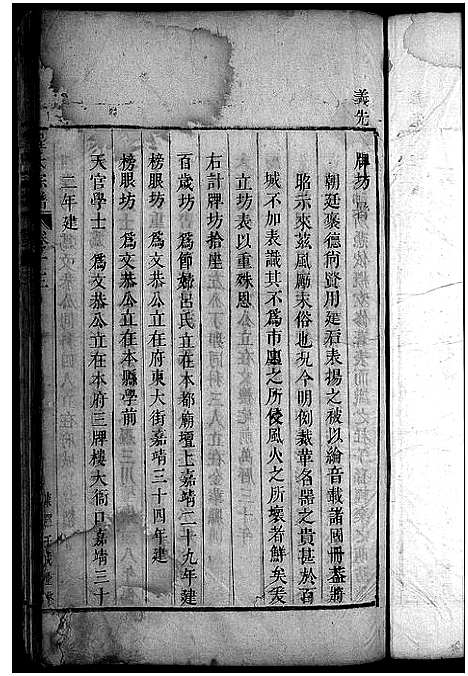 義先
牌坊
朝廷褒德尚賢用建石表揚之被以綸音載諸國冊葢將
昭示來茲風勵末俗也況今明例裁革名器之貴甚於百
城不加表識其不爲市廛之所侵風火之所壞者鮮矣爰
立坊表以重殊恩
右計牌坊拾座
百歲坊 爲節婦呂氏立在本都廟壇上嘉靖二十九年建
榜眼坊 爲文恭公立在府東大街嘉靖三十四年建
榜眼坊 爲文恭公立在本縣學前
天官學士 爲文恭公立在本府三牌樓大衙口嘉靖三十
二年建